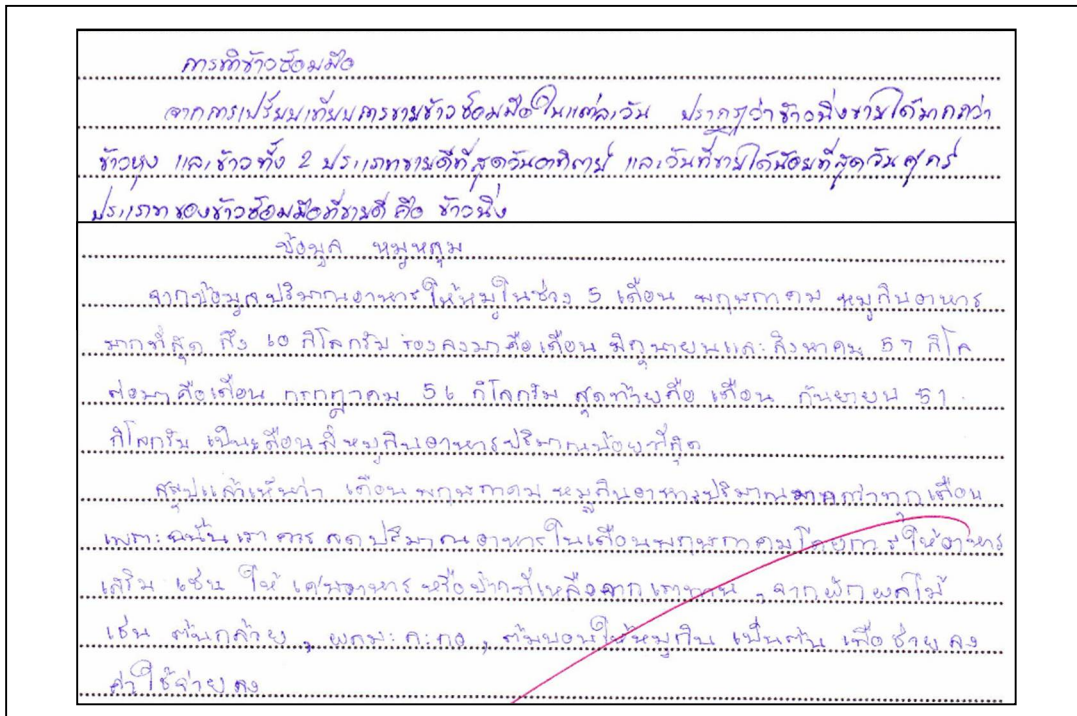 การทำข้าวซ้อมมือ
จากการเปรียบเทียบการขายข้าวซ้อมมือในแต่ละวัน ปรากฏว่าข้าวนึ่งขายได้มากกว่า
ข้าวหุง และข้าวทั้ง 2 ประเภทขายดีที่สุดวันอาทิตย์ และวันที่ขายได้น้อยที่สุดวันศุกร์
ประเภทของข้าวซ้อมมือที่ขายดี คือ ข้าวนึ่ง
ข้อมูล หมูหลุม
จากข้อมูลปริมาณอาหารให้หมูในช่วง 5 เดือน พฤษภาคม หมูกินอาหาร
มากที่สุด ถึง 60 กิโลกรัม รองลงมาคือเดือน มิถุนายนและสิงหาคม 57 กิโล
ต่อมาคือเดือน กรกฎาคม 56 กิโลกรัม สุดท้ายคือ เดือน กันยายน 51
กิโลกรัม เป็นเดือนที่หมูกินอาหารปริมาณน้อยที่สุด
สรุปแล้วเห็นว่า เดือนพฤษภาคม หมูกินอาหารปริมาณมากกว่าทุกเดือน
เพราะฉะนั้นเราควรลดปริมาณอาหารในเดือนพฤษภาคมโดยการให้อาหาร
เสริม เช่น ให้เศษอาหาร หรือข้าวที่เหลือจากเราทาน , จากผัก ผลไม้
เช่น ต้นกล้วย , ผลมะละกอ , ต้มบอนให้หมูกิน เป็นต้น เพื่อช่วยลง
ค่าใช้จ่ายลง